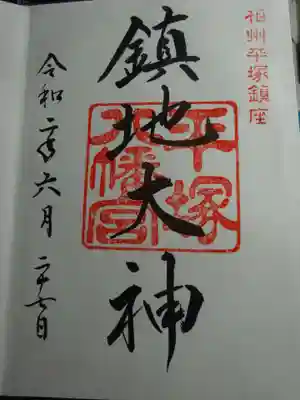 相州平塚鎮座
鎮地大神
平塚
八幡宮
令和二年六月二十七日